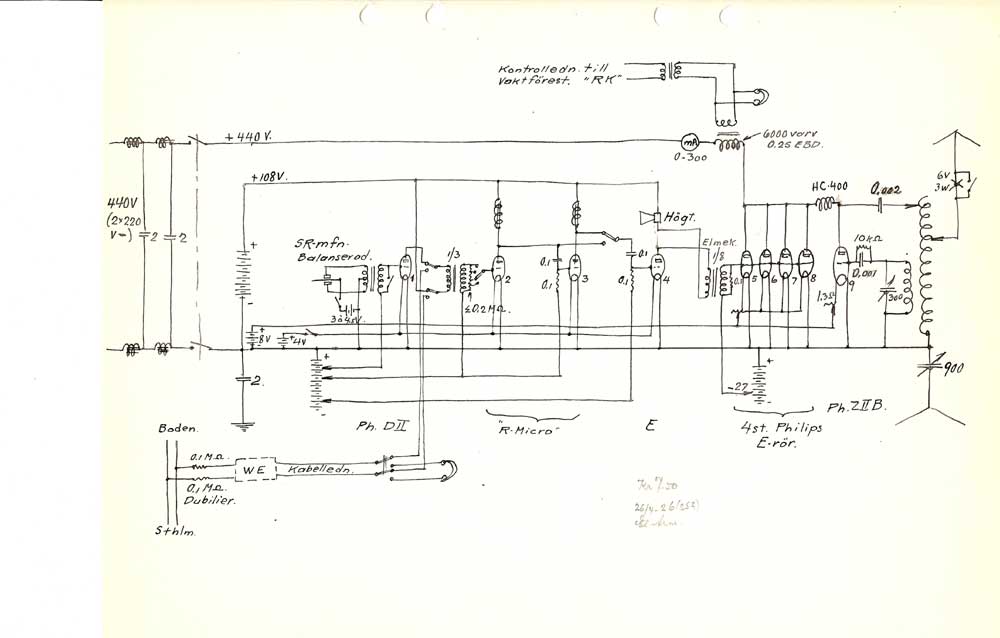 Kontrolledn. till
Vaktförest. "RK"
+440 V.
mA
0-300
6000 varv
0.25 EBD.
+108V.
440V
(2×220
V=)
2
2
SR-mfn.
Balanserad.
1/3
Högt.
Elmek.
1/8
HC.400
0.002
6V
3W.
10kΩ
0,001
300
1.3Ω
0.1
0.1
0.1
0.1
0.1
1
2
3
4
5
6
7
8
9
≤0.2MΩ.
3à4.5V.
+
8V
+4V
+
-
+
-
-27
+
-
900
2.
Ph. DII
"R-Micro"
E
4st. Philips
E-rör.
Ph.ZIIB.
Boden.
0.1MΩ.
WE
Kabelledn.
0.1MΩ
Dubilier.
Sthlm.